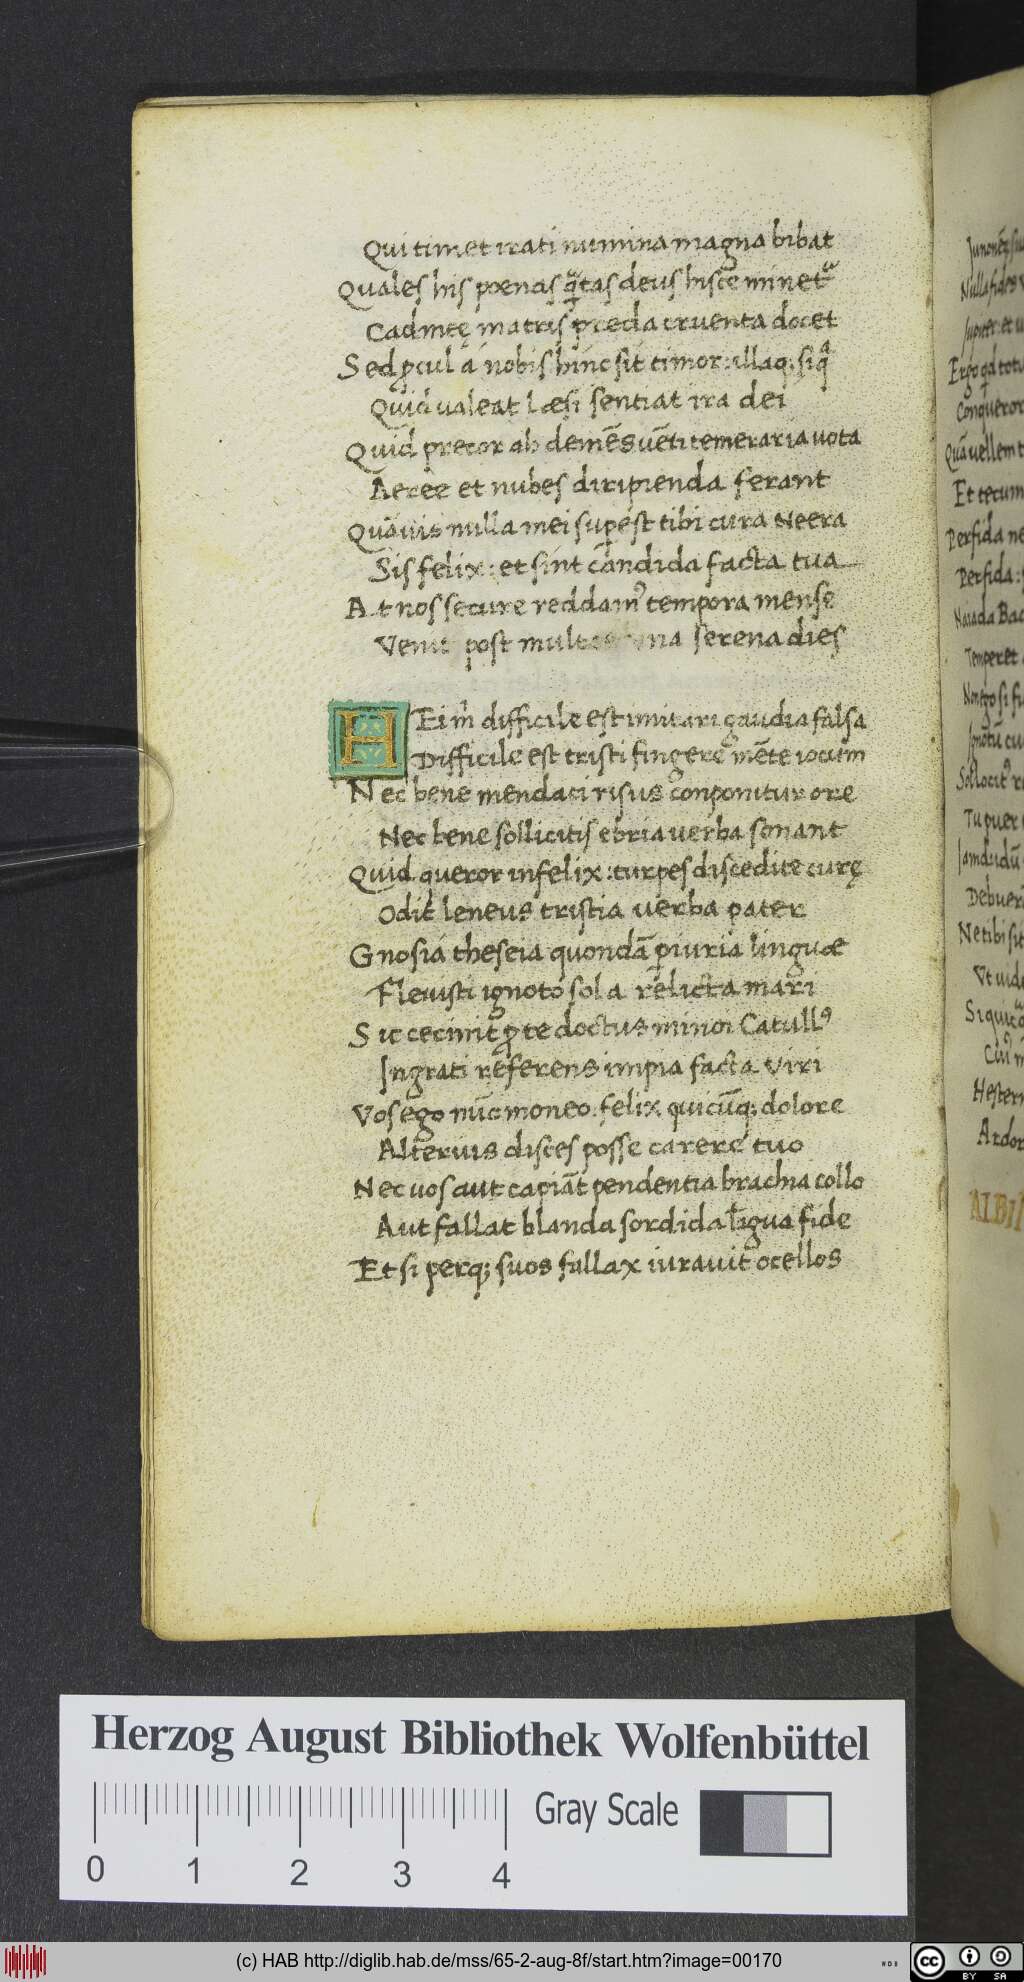 Qui timet irati numina magna bibat
Quales his poenas qᷓtas deus hisce minetᷓ
Cadmeę matris preda cruenta docet
Sed ꝓcul a nobis hinc sit timor: illaq; siqᷓ
Quid ualeat læsi sentiat ira dei
Quid precor ah demēs uēti temeraria uota
Aeree et nubes diripienda ferant
Quāuis nulla mei suꝑest tibi cura Neera
Sis felix: et sint candida facta tua
At nos secure reddamꝰ tempora mense
Venit post multas una serena dies
HEi m̄ difficile est imitari gaudia falsa
Difficile est tristi fingere mēte iocum
Nec bene mendaci risus conponitur ore
Nec bene sollicitis ebria uerba sonant
Quid queror infelix: turpes discedite curę
Odit leneus tristia uerba pater
Gnosia theseia quondā ꝑiuria linguæ
Fleuisti ignoto sola relicta mari
Sic cecinit ꝓ te doctus minoi Catullꝰ
Ingrati referens impia facta viri
Vos ego nūc moneo. felix quicūq; dolore
Alterius disces posse carere tuo
Nec uos aut capiāt pendentia brachia collo
Aut fallat blanda sordida līgua fide
Et si perq; suos fallax iurauit ocellos
Nulla fides
Conqueror
Et tecum
Perfida
Perfida:
Temperet
Tu puer
Debuer
Ne tibi sit
Vt uid
Hester
Ardor
ALBI
Herzog August Bibliothek Wolfenbüttel
Gray Scale
0 1 2 3 4
(c) HAB http://diglib.hab.de/mss/65-2-aug-8f/start.htm?image=00170
WDB
cc BY SA